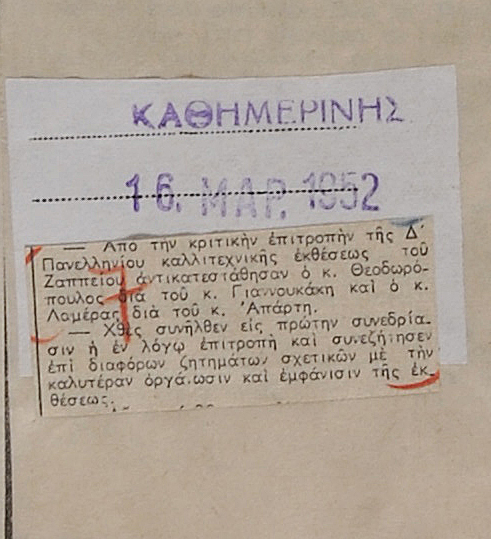 ΚΑΘΗΜΕΡΙΝΗΣ
16. ΜΑΡ. 1952
— Ἀπὸ τὴν κριτικὴν ἐπιτροπὴν τῆς Δ΄
Πανελληνίου καλλιτεχνικῆς ἐκθέσεως τοῦ
Ζαππείου ἀντικατεστάθησαν ὁ κ. Θεοδωρό-
πουλος διὰ τοῦ κ. Γιαννουκάκη καὶ ὁ κ.
Λαμέρας διὰ τοῦ κ. Ἀπάρτη.
— Χθὲς συνῆλθεν εἰς πρώτην συνεδρία-
σιν ἡ ἐν λόγῳ ἐπιτροπὴ καὶ συνεζήτησεν
ἐπὶ διαφόρων ζητημάτων σχετικῶν μὲ τὴν
καλυτέραν ὀργάνωσιν καὶ ἐμφάνισιν τῆς ἐκ-
θέσεως.